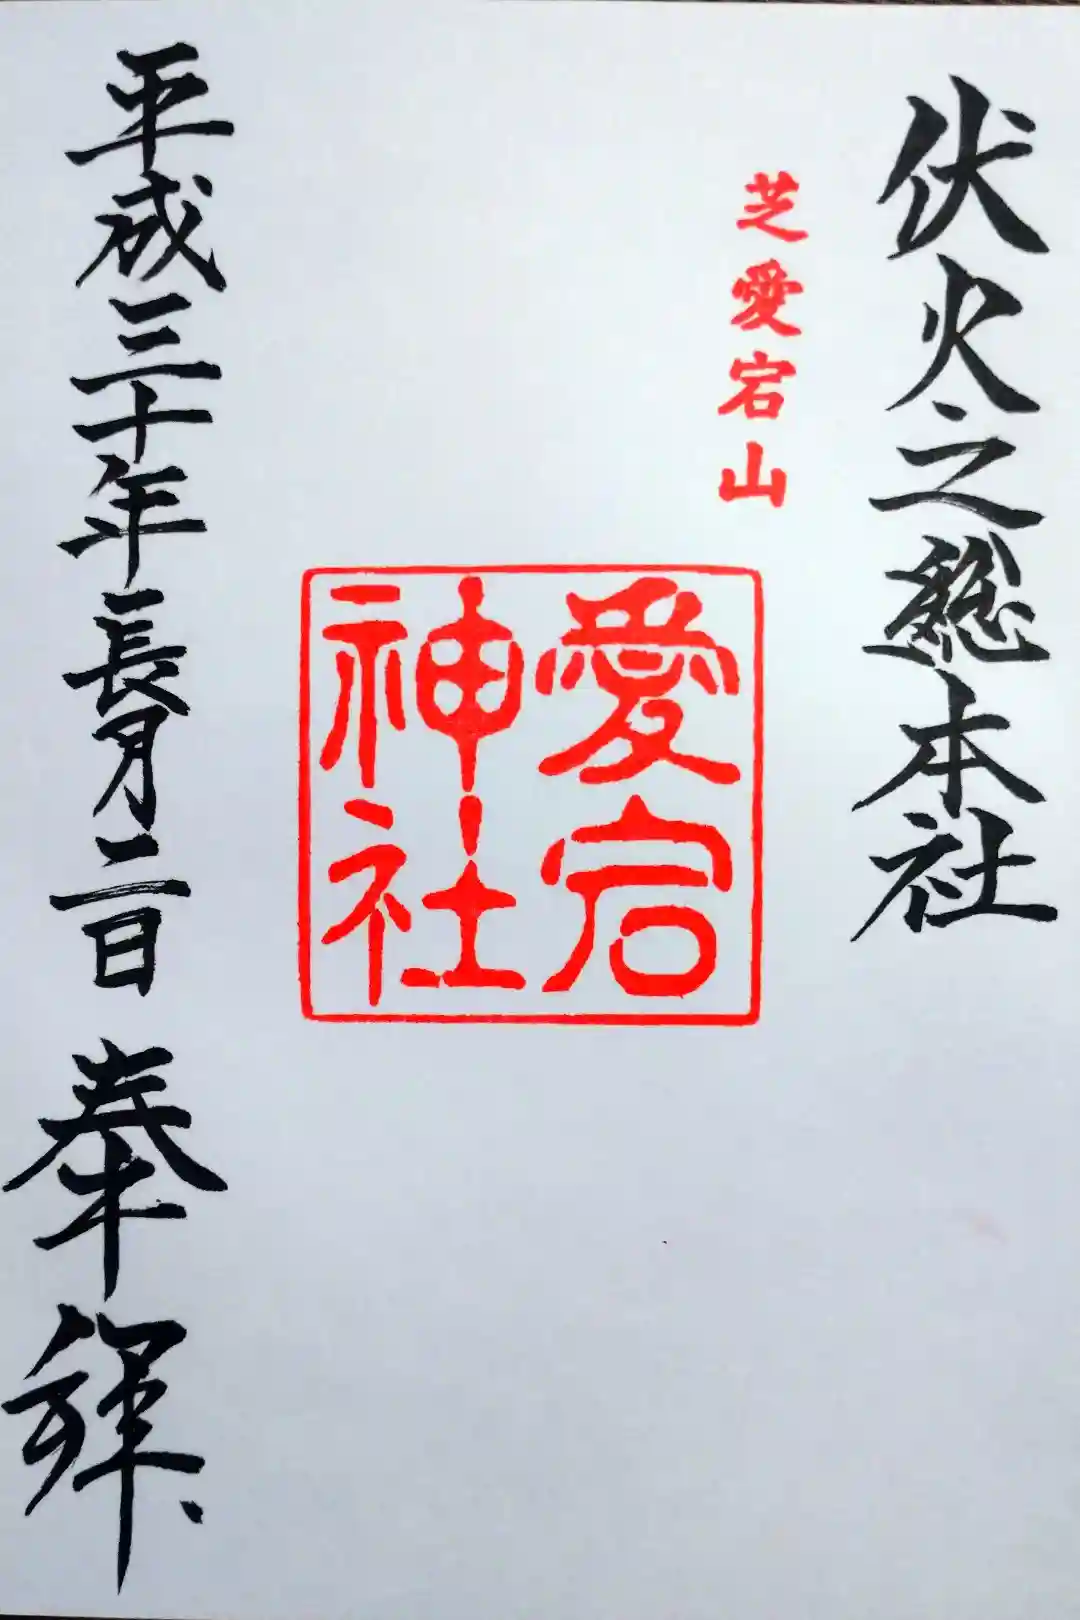 伏火之總本社
芝愛宕山
愛宕
神社
平成三十年長月二日 奉拝